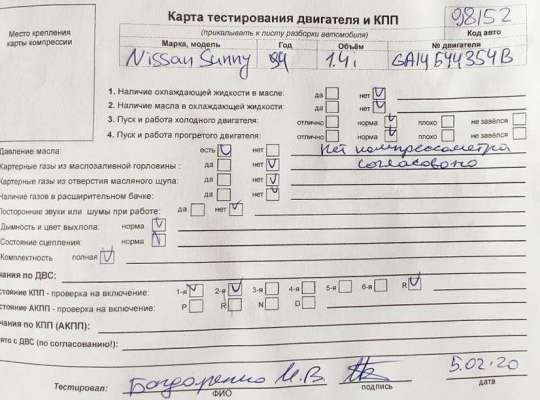 Место крепления
карты компрессии
Карта тестирования двигателя и КПП
(прикалывать к листу разборки автомобиля)
98152
Код авто
Марка, модель Год Объём № двигателя
Nissan Sunny 94 1.4i GA14544354B
1. Наличие охлаждающей жидкости в масле: да нет
2. Наличие масла в охлаждающей жидкости: да нет
3. Пуск и работа холодного двигателя: отлично норма плохо не завёлся
4. Пуск и работа прогретого двигателя: отлично норма плохо не завёлся
Давление масла: есть нет Нет компрессометра
Картерные газы из маслозаливной горловины: да нет согласовано
Картерные газы из отверстия масляного щупа: да нет
Наличие газов в расширительном бачке: да нет
Посторонние звуки или шумы при работе: да нет
Дымность и цвет выхлопа: норма
Состояние сцепления: норма
Комплектность полная
ания по ДВС:
стояние КПП - проверка на включение: 1-я 2-я 3-я 4-я 5-я 6-я R
стояние АКПП - проверка на включение: P R N D
чания по КПП (АКПП):
ято с ДВС (по согласованию!):
Тестировал: Бондаренко И.В. 5.02.20
ФИО подпись дата